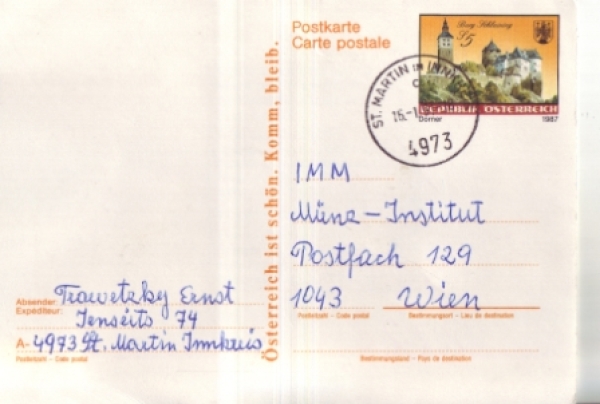 Postkarte
Carte postale
Burg Schlaining
S5
REPUBLIK ÖSTERREICH
Dorner 1987
ST. MARTIN im INNKR
4973
Österreich ist schön. Komm, bleib.
IMM
Münz-Institut
Postfach 129
1043 Wien
Postleitzahl – Code postal Bestimmungsort – Lieu de destination
Bestimmungsland – Pays de destination
Absender: Trawetzky Ernst
Expéditeur: Jenseits 74
A-4973 St. Martin Innkreis
Postleitzahl – Code postal